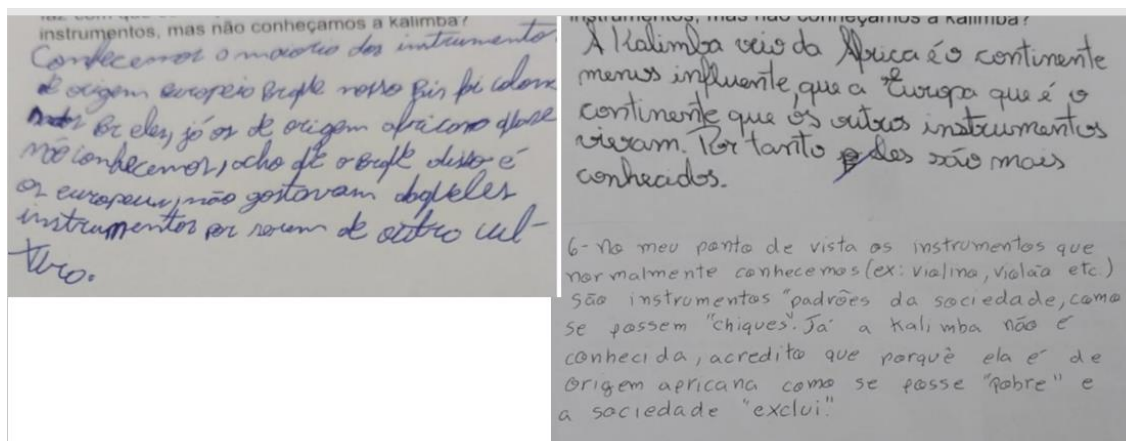 instrumentos, mas não conheçamos a kalimba?
Conhecemos o maioria dos intrumento
de origem europeia porque nosso país foi colon
por eles, já os de origem africana quase
não conhecemos, acho que o porquê disso é
os europeus, não gostavam daqueles
instrumentos por serem de outro cul-
tura.
instrumentos, mas não conheçamos a kalimba?
A Kalimba veio da África é o continente
menos influente, que a Europa que é o
continente que os outros instrumentos
vieram. Por tanto eles são mais
conhecidos.
6- No meu ponto de vista os instrumentos que
normalmente conhecemos (ex: violino, violão etc.)
são instrumentos "padrões da sociedade, como
se fossem "chiques". Já a Kalimba não é
conhecida, acredito que porquê ela é de
origem africana como se fosse "pobre" e
a sociedade "exclui"